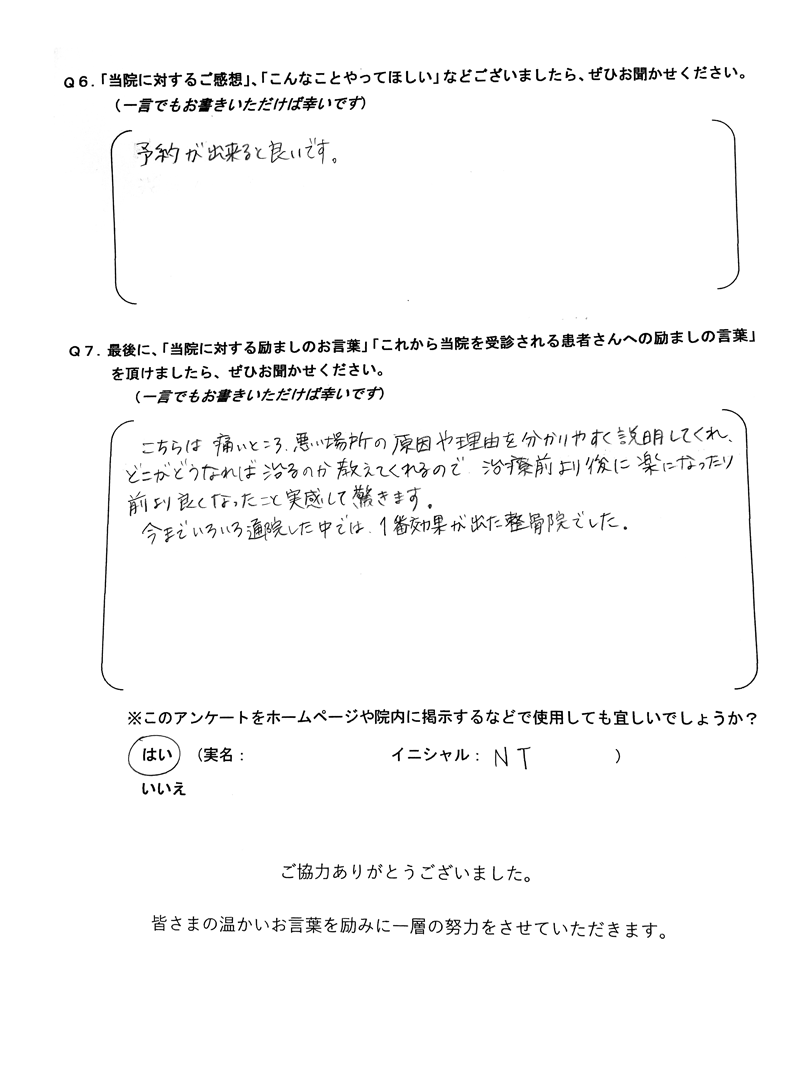 Q6.「当院に対するご感想」、「こんなことやってほしい」などございましたら、ぜひお聞かせください。
（一言でもお書きいただけば幸いです）
予約が出来ると良いです。
Q7.最後に、「当院に対する励ましのお言葉」「これから当院を受診される患者さんへの励ましの言葉」
を頂けましたら、ぜひお聞かせください。
（一言でもお書きいただけば幸いです）
こちらは 痛いところ、悪い場所の原因や理由を分かりやすく説明してくれ、
どこがどうなれば治るのか教えてくれるので 治療前より後に楽になったり
前より良くなったこと実感して驚きます。
今までいろいろ通院した中では、1番効果が出た整骨院でした。
※このアンケートをホームページや院内に掲示するなどで使用しても宜しいでしょうか？
はい （実名： イニシャル： NT ）
いいえ
ご協力ありがとうございました。
皆さまの温かいお言葉を励みに一層の努力をさせていただきます。